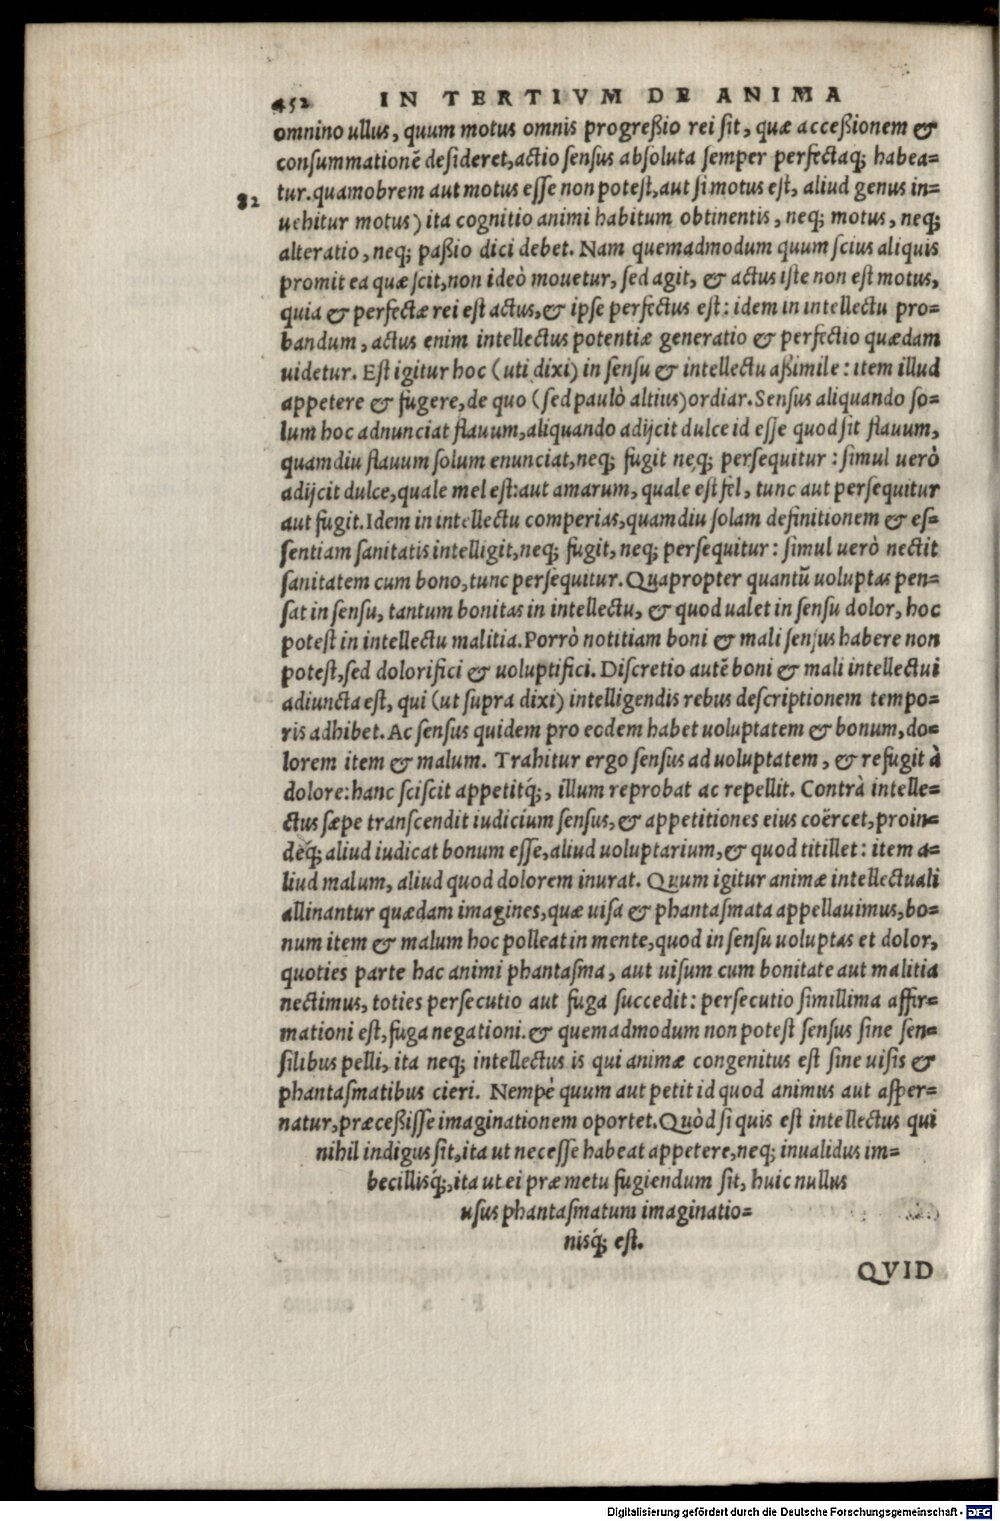 452 IN TERTIVM DE ANIMA
omnino ullus, quum motus omnis progreßio rei sit, quæ acceßionem &
consummationẽ desideret, actio sensus absoluta semper perfectaq; habea=
tur. quamobrem aut motus esse non potest, aut si motus est, aliud genus in=
82
uehitur motus) ita cognitio animi habitum obtinentis, neq; motus, neq;
alteratio, neq; paßio dici debet. Nam quemadmodum quum scius aliquis
promit ea quæ scit, non ideò mouetur, sed agit, & actus iste non est motus,
quia & perfectæ rei est actus, & ipse perfectus est: idem in intellectu pro=
bandum, actus enim intellectus potentiæ generatio & perfectio quædam
uidetur. Est igitur hoc (uti dixi) in sensu & intellectu aßimile: item illud
appetere & fugere, de quo (sed paulò altius) ordiar. Sensus aliquando so=
lum hoc adnunciat flauum, aliquando adijcit dulce id esse quod sit flauum,
quamdiu flauum solum enunciat, neq; fugit neq; persequitur: simul uerò
adijcit dulce, quale mel est: aut amarum, quale est fel, tunc aut persequitur
aut fugit. Idem in intellectu comperias, quamdiu solam definitionem & es=
sentiam sanitatis intelligit, neq; fugit, neq; persequitur: simul uerò nectit
sanitatem cum bono, tunc persequitur. Quapropter quantũ uoluptas pen=
sat in sensu, tantum bonitas in intellectu, & quod ualet in sensu dolor, hoc
potest in intellectu malitia. Porrò notitiam boni & mali sensus habere non
potest, sed dolorifici & uoluptifici. Discretio autẽ boni & mali intellectui
adiuncta est, qui (ut supra dixi) intelligendis rebus descriptionem tempo=
ris adhibet. Ac sensus quidem pro eodem habet uoluptatem & bonum, do=
lorem item & malum. Trahitur ergo sensus ad uoluptatem, & refugit à
dolore: hanc sciscit appetitq́;, illum reprobat ac repellit. Contrà intelle=
ctus sæpe transcendit iudicium sensus, & appetitiones eius coërcet, proin=
deq́; aliud iudicat bonum esse, aliud uoluptarium, & quod titillet: item a=
liud malum, aliud quod dolorem inurat. Quum igitur animæ intellectuali
allinantur quædam imagines, quæ uisa & phantasmata appellauimus, bo=
num item & malum hoc polleat in mente, quod in sensu uoluptas et dolor,
quoties parte hac animi phantasma, aut uisum cum bonitate aut malitia
nectimus, toties persecutio aut fuga succedit: persecutio simillima affir=
mationi est, fuga negationi. & quemadmodum non potest sensus sine sen=
silibus pelli, ita neq; intellectus is qui animæ congenitus est sine uisis &
phantasmatibus cieri. Nempè quum aut petit id quod animus aut asper=
natur, præceßisse imaginationem oportet. Quòd si quis est intellectus qui
nihil indigus sit, ita ut necesse habeat appetere, neq; inualidus im=
becillisq́;, ita ut ei præ metu fugiendum sit, huic nullus
usus phantasmatum imaginatio=
nisq́; est.
QVID
Digitalisierung gefördert durch die Deutsche Forschungsgemeinschaft - DFG